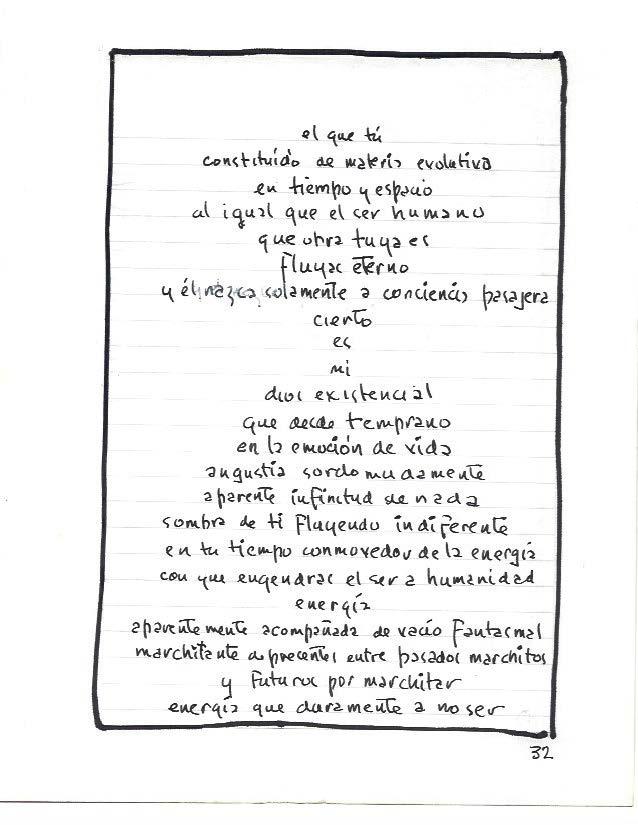 el que tú
constituído de materia evolutiva
en tiempo y espacio
al igual que el ser humano
que obra tuya es
fluyas eterno
y él nazca solamente a conciencia pasajera
cierto
es
mi
dios existencial
que desde temprano
en la emoción de vida
angustia sordomudamente
aparente infinitud de nada
sombra de ti fluyendo indiferente
en tu tiempo conmovedor de la energía
con que engendras el ser a humanidad
energía
aparentemente acompañada de vacío fantasmal
marchitante de presentes entre pasados marchitos
y futuros por marchitar
energía que duramente a no ser
32